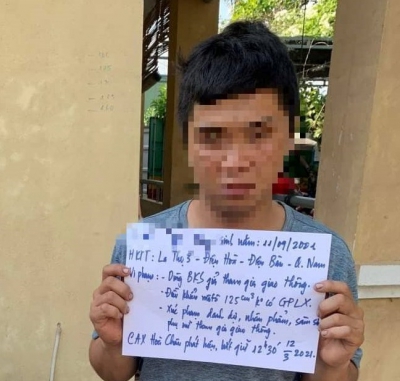 sinh năm: 11/09/2001
HKTT: La Thọ 3 - Điện Hoà - Điện Bàn - Q. Nam
Vi phạm: - Dùng BKS giả tham gia giao thông.
- Điều khiển môtô 125cm³ k° có GPLX.
- Xúc phạm danh dự, nhân phẩm, sàm sỡ
phụ nữ tham gia giao thông.
CAX Hoà Châu phát hiện, bắt giữ 12h30' 12/3 2021.